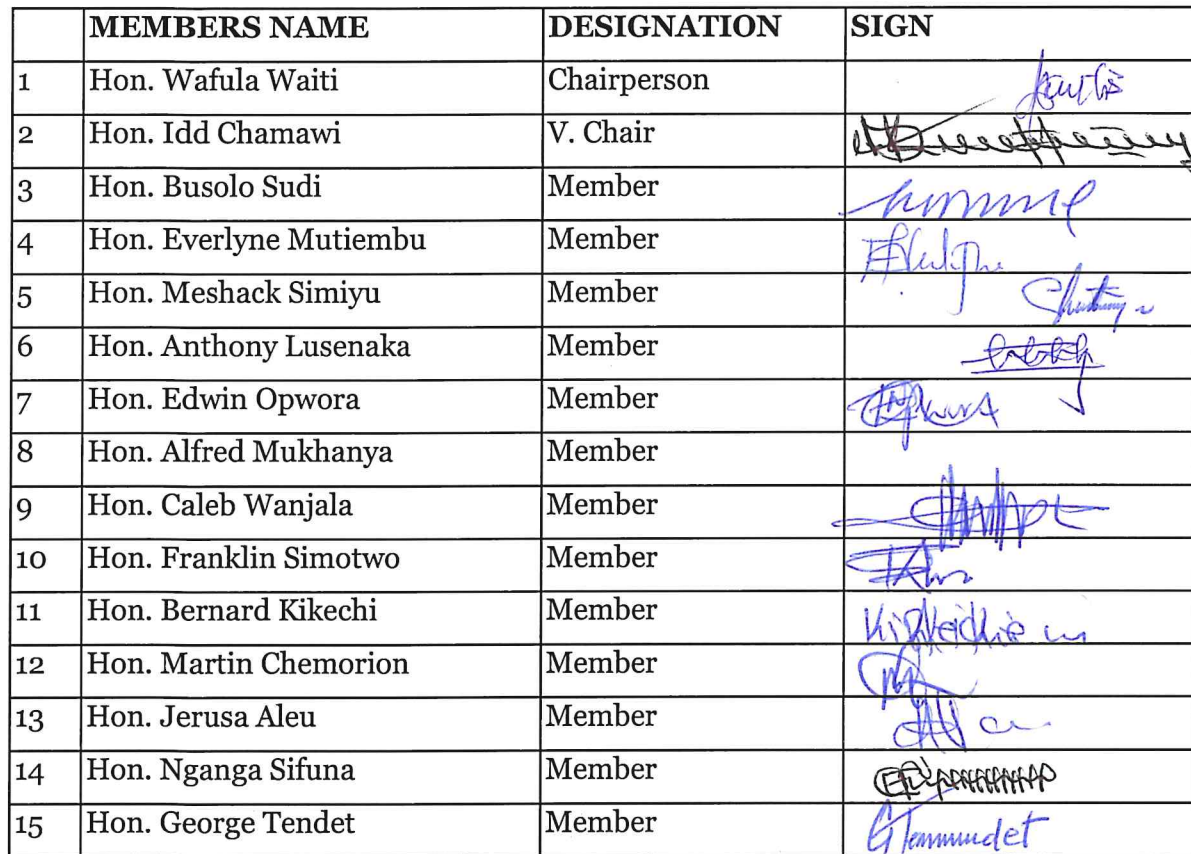 MEMBERS NAME DESIGNATION SIGN
1 Hon. Wafula Waiti Chairperson
2 Hon. Idd Chamawi V. Chair
3 Hon. Busolo Sudi Member
4 Hon. Everlyne Mutiembu Member
5 Hon. Meshack Simiyu Member
6 Hon. Anthony Lusenaka Member
7 Hon. Edwin Opwora Member
8 Hon. Alfred Mukhanya Member
9 Hon. Caleb Wanjala Member
10 Hon. Franklin Simotwo Member
11 Hon. Bernard Kikechi Member
12 Hon. Martin Chemorion Member
13 Hon. Jerusa Aleu Member
14 Hon. Nganga Sifuna Member
15 Hon. George Tendet Member